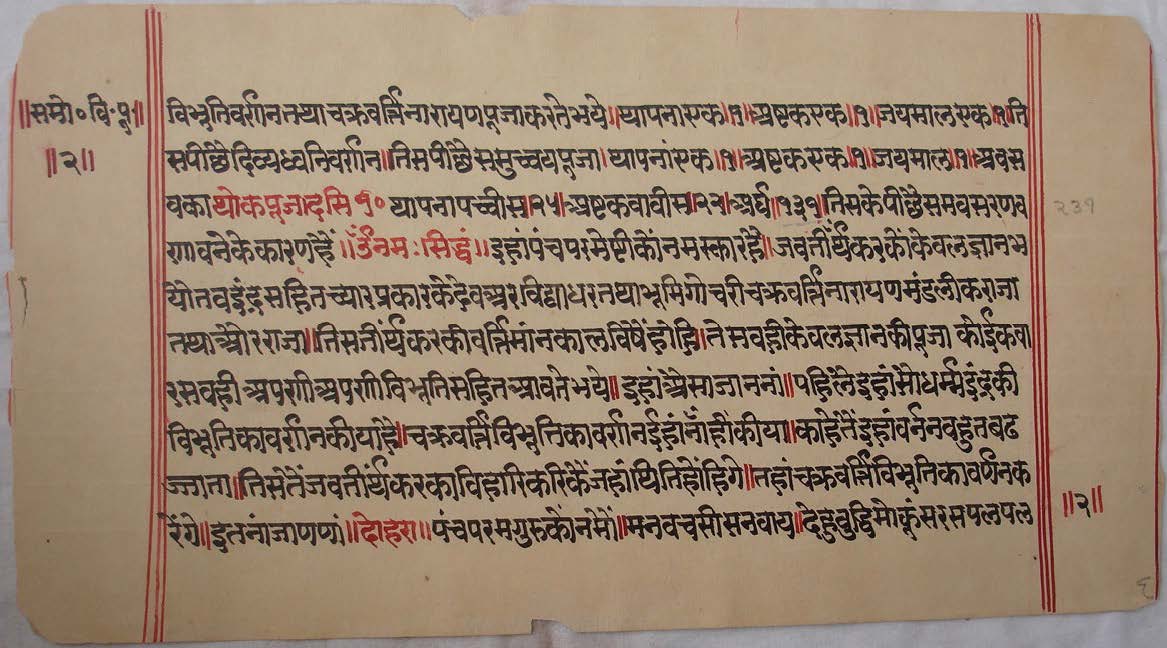 ॥समो०वि॰पू॥
॥२॥
विभूतिवर्णन तथा चक्रवर्त्ति नारायण पूजा करते भये॥ थापना एक॥१॥ अष्टक एक॥१॥ जयमाल एक॥१॥ ति
स पीछै दिव्यध्वनि वर्णन॥ तिस पीछै समुच्चय पूजा॥ थापनां एक॥१॥ अष्टक एक॥१॥ जयमाल॥१॥ अब स
व का थोक पूजा दसि १० थापना पच्चीस॥२५॥ अष्टक बावीस॥२२॥ अर्घ॥१३१॥ तिसके पीछै समवसरण व
र्णावने के कारण हैं॥ ॐ नमः सिद्धं॥ इहां पंच परमेष्टी कों नमस्कार है॥ जब तीर्थंकर कों केवलज्ञान भ
यो तब इंद्र सहित च्यार प्रकार के देव अर विद्याधर तथा भूमिगोचरी चक्रवर्त्ति नारायण मंडलीक राजा
तथा औ‍र राजा॥ तिस तीर्थंकर की वर्त्तिमांन काल विषें होंहि॥ ते सब ही केवलज्ञान की पूजा कोई क वा
र सब ही अपणी अपणी विभूति सहित आवते भये॥ इहां अैसा जाननां॥ पहिलै इहां सौधर्म्म इंद्र की
विभूति का वर्णन कीया है॥ चक्रवर्त्ति विभूति का वर्णन ईहां नांहीं कीया॥ काहे तैं इहां वर्नन बहुत बढ
ज्जाता॥ तिसेतैं जब तीर्थंकर का विहार करिकैं जहां थिति होंहिगे॥ तहां चक्रवर्त्ति विभूति का वर्णन क
रेंगे॥ इतनां जाणणां॥ दोहरा॥ पंच परम गुरु कों नमों॥ मन वच सीस नवाय॥ देहु बुद्धि मोकूं सरस पल पल
२३१
॥२॥
६